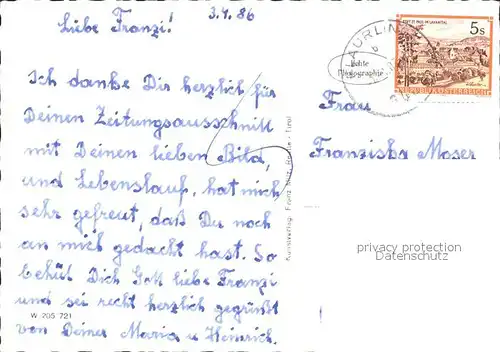 3.4.86
Liebe Franzi!
Ich danke Dir herzlich für
Deinen Zeitungsausschnitt
mit Deinen lieben Bild,
und Lebenslauf, hat mich
sehr gefreut, daß Du noch
an mich gedacht hast. So
behüt Dich Gott liebe Franzi
und sei recht herzlich gegrüßt
von Deiner Maria u Heinrich.
W 205 721
Kunstverlag Franz Tirol
echte
Photographie
5s
REPUBLIK ÖSTERREICH
Frau
Franziska Moser
privacy protection
Datenschutz